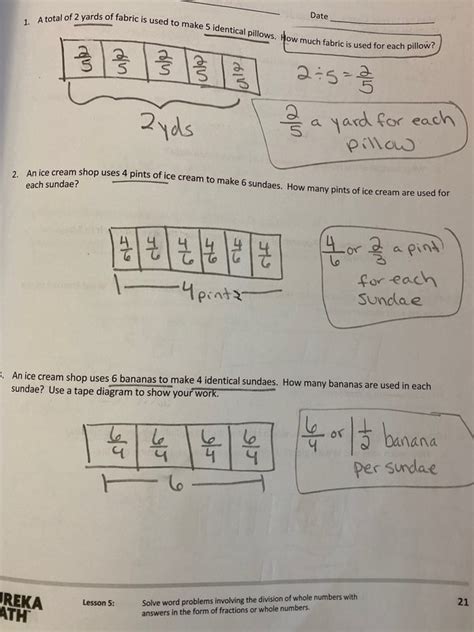 Date
1. A total of 2 yards of fabric is used to make 5 identical pillows. How much fabric is used for each pillow?
2/5 2/5 2/5 2/5 2/5
2yds
2÷5=2/5
2/5 a yard for each
pillow
2. An ice cream shop uses 4 pints of ice cream to make 6 sundaes. How many pints of ice cream are used for
each sundae?
4/6 4/6 4/6 4/6 4/6 4/6
4 pints
4/6 or 2/3 a pint
for each
sundae
An ice cream shop uses 6 bananas to make 4 identical sundaes. How many bananas are used in each
sundae? Use a tape diagram to show your work.
6/4 6/4 6/4 6/4
6
6/4 or 1 1/2 banana
per sundae
UREKA
ATH
Lesson 5:
Solve word problems involving the division of whole numbers with
answers in the form of fractions or whole numbers.
21